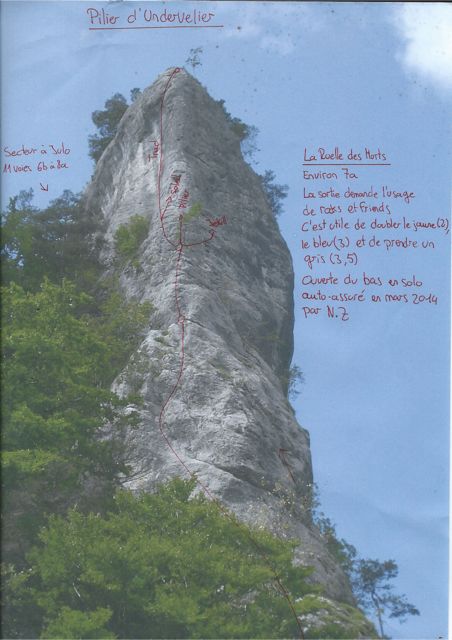 Pilier d'Undervelier
Secteur à Julo
11 voies 6b à 8a
La Ruelle des Morts
Environ 7a
La sortie demande l'usage
de rocks et friends
C'est utile de doubler le jaune (2),
le bleu (3) et de prendre un
gris (3,5)
Ouverte du bas en solo
auto-assuré en mars 2014
par N.Z